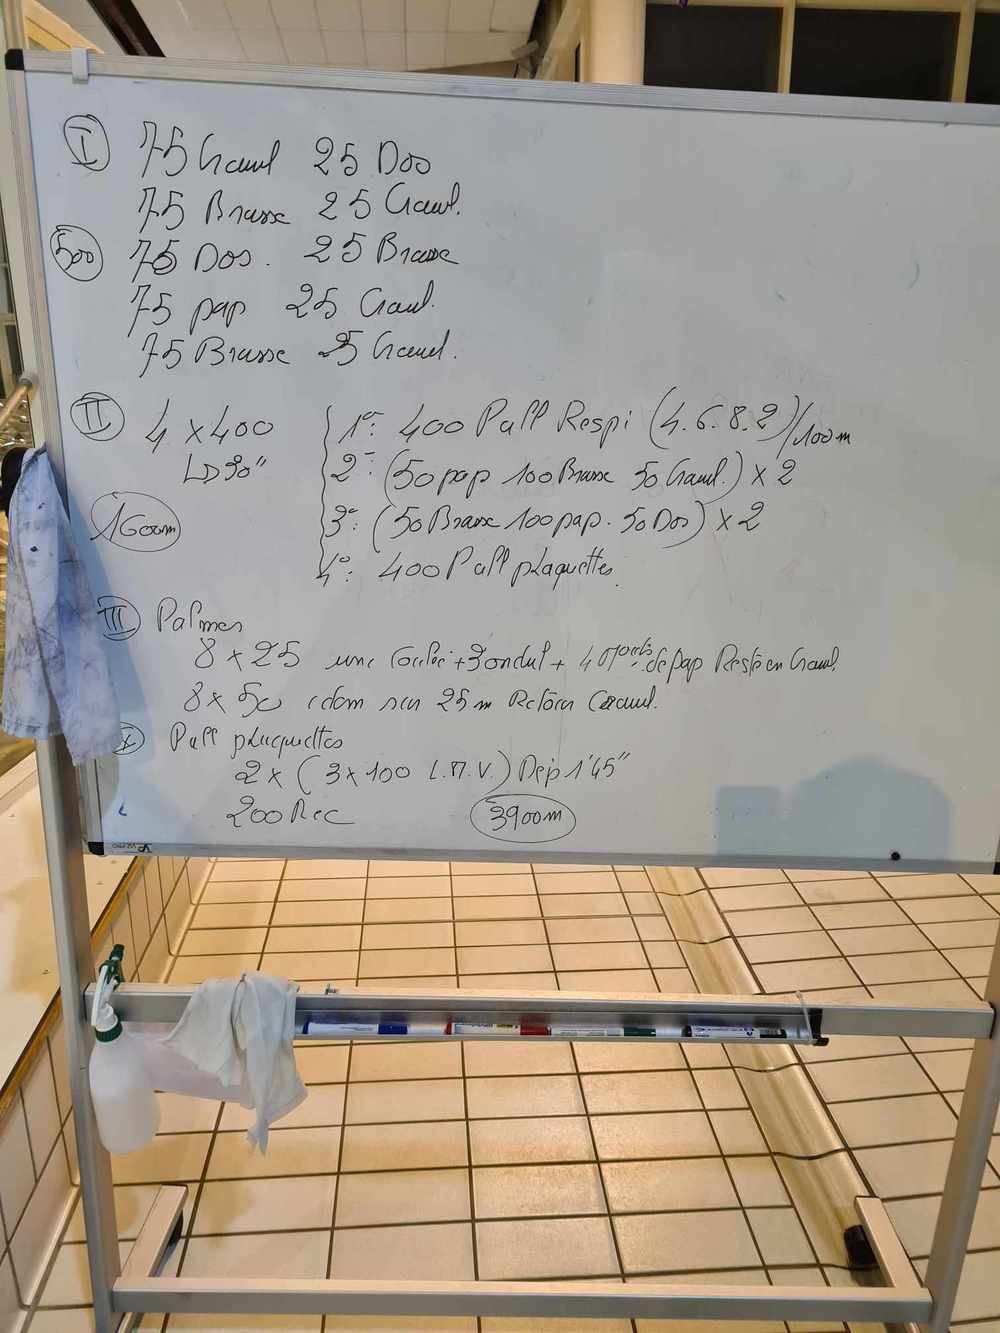 I 75 Crawl 25 Dos
75 Brasse 25 Crawl.
500 75 Dos. 25 Brasse
75 pap 25 Crawl.
75 Brasse 25 Crawl.
II 4 x 400 1°: 400 Pull Respi (4.6.8.2)/100m
30" 2°: (50 pap 100 Brasse 50 Crawl.) x 2
1600m 3°: (50 Brasse 100 pap. 50 Dos) x 2
4°: 400 Pull plaquettes.
III Palmes
8 x 25 une Coulée + 3 ondul + 4 de pap Reste en Crawl.
8 x 50 idem sur 25m Retour Crawl.
Pull plaquettes
2 x (3 x 100 L.M.V.) Dep 1'45"
200 Rec 3900m